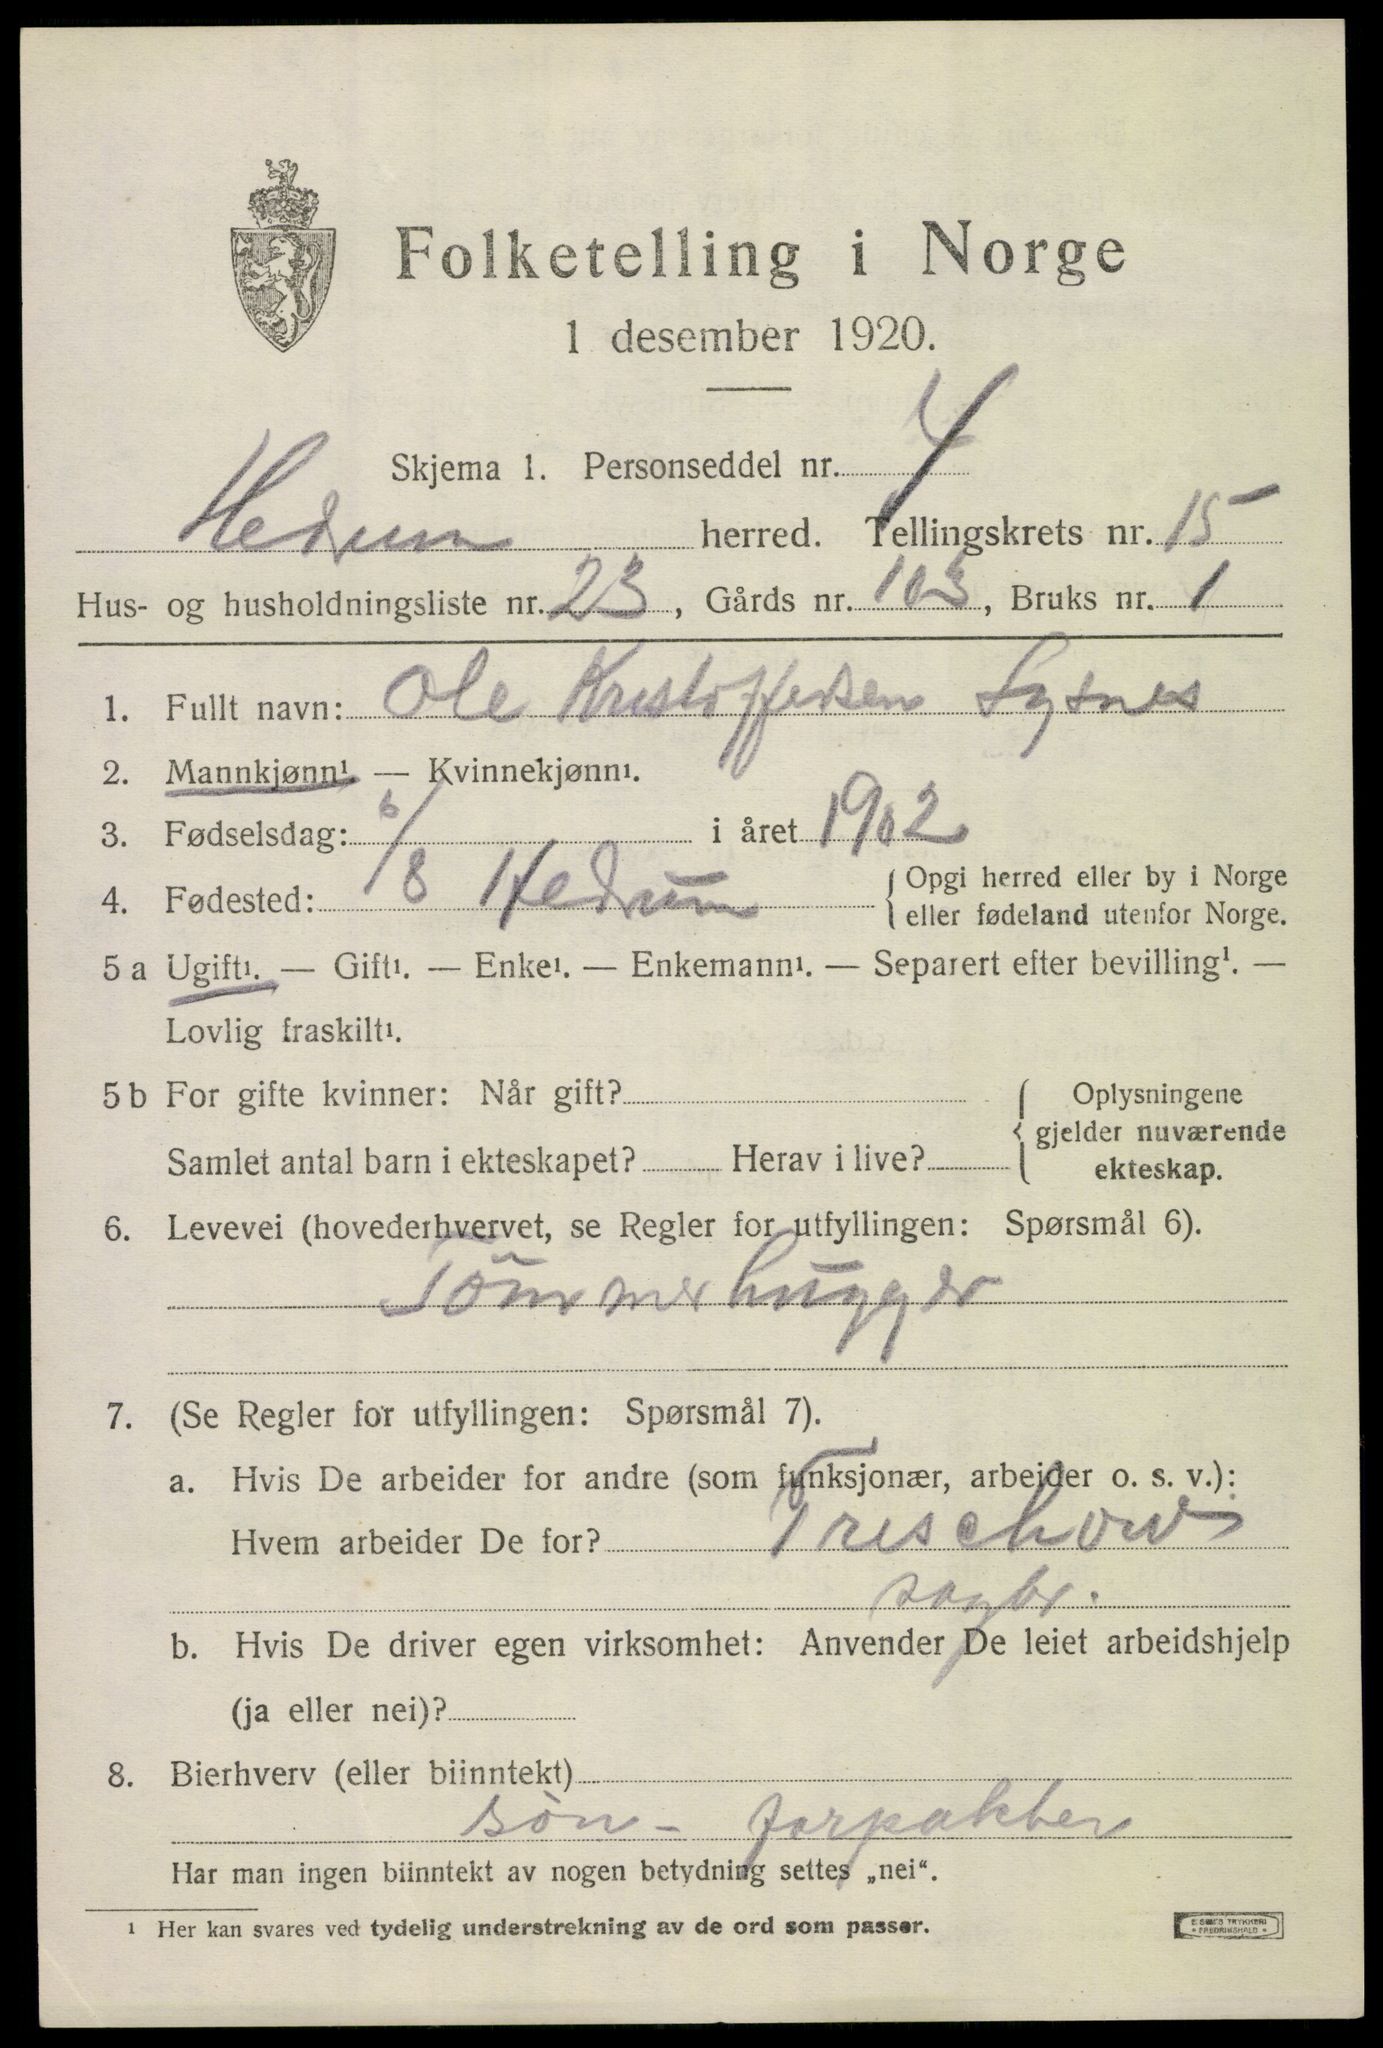 Folketelling i Norge
1 desember 1920.
Skjema 1. Personseddel nr. 4
Hedrum herred. Tellingskrets nr. 15
Hus- og husholdningsliste nr. 23, Gårds nr. 103, Bruks nr. 1
1. Fullt navn: Ole Kristoffersen
2. Mannkjønn¹. — Kvinnekjønn¹.
3. Fødselsdag: 6/8 i året 1902
4. Fødested: Hedrum { Opgi herred eller by i Norge
eller fødeland utenfor Norge.
5 a Ugift¹. — Gift¹. — Enke¹. — Enkemann¹. — Separert efter bevilling¹. —
Lovlig fraskilt¹.
5 b For gifte kvinner: Når gift? { Oplysningene
gjelder nuværende
Samlet antal barn i ekteskapet? Herav i live? ekteskap.
6. Levevei (hovederhvervet, se Regler for utfyllingen: Spørsmål 6).
Tömmerhugger
7. (Se Regler for utfyllingen: Spørsmål 7).
a. Hvis De arbeider for andre (som funksjonær, arbeider o. s. v.):
Hvem arbeider De for? Treschow
b. Hvis De driver egen virksomhet: Anvender De leiet arbeidshjelp
(ja eller nei)?
8. Bierhverv (eller biinntekt)
søn - forpakter
Har man ingen biinntekt av nogen betydning settes „nei“.
¹ Her kan svares ved tydelig understrekning av de ord som passer.
E. SEM'S TRYKKERI
• FREDRIKSHALD •